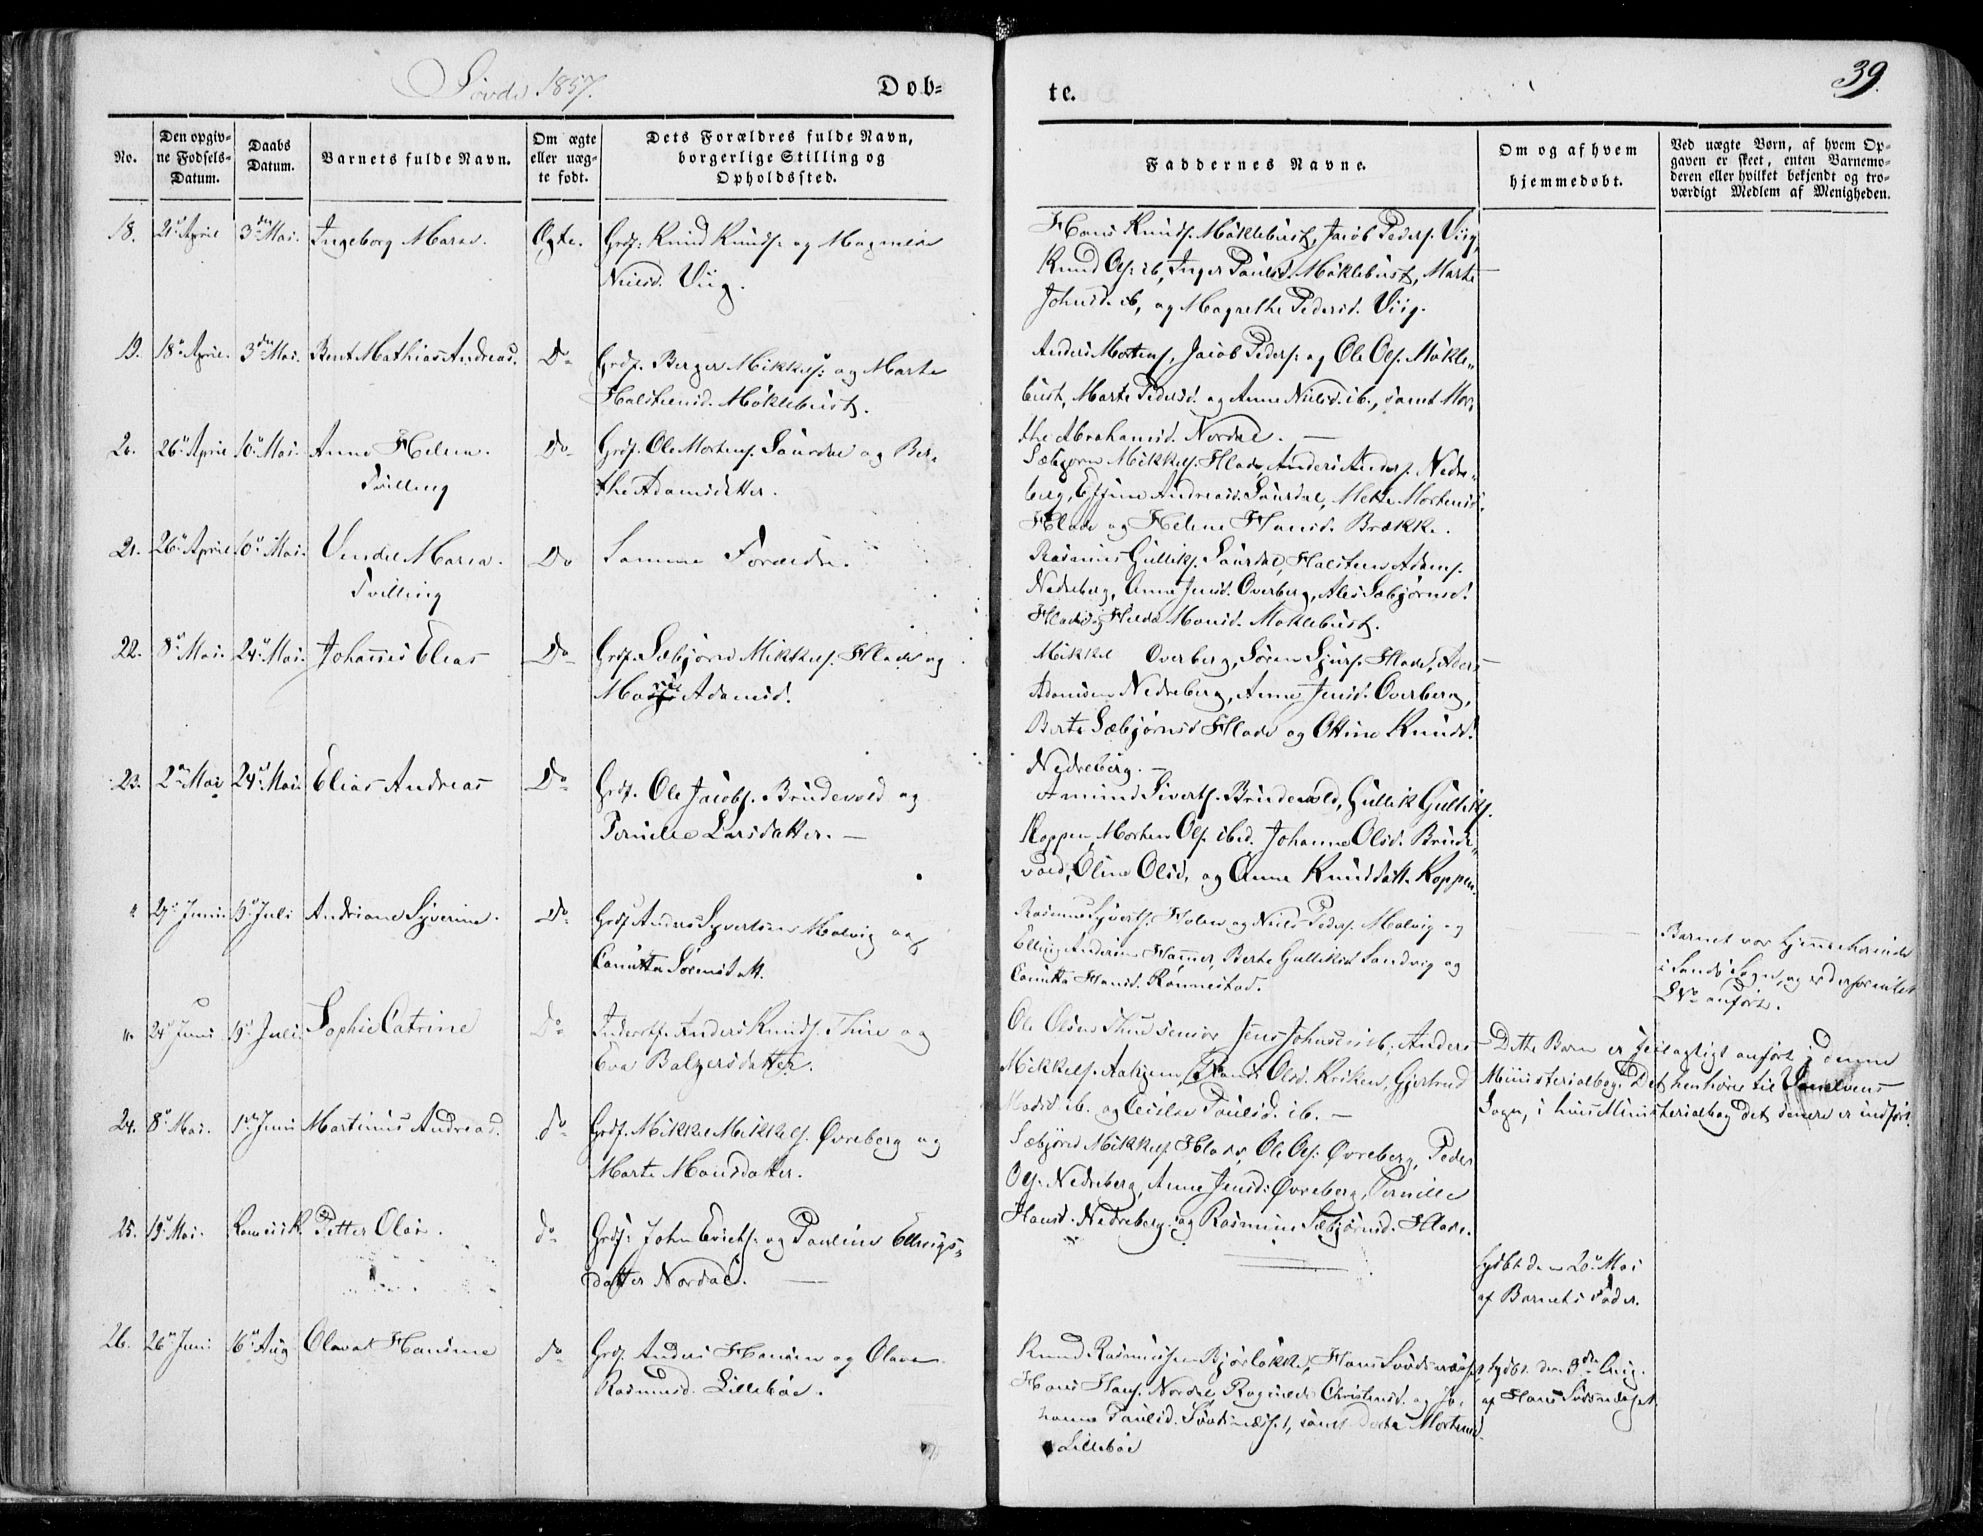 Søvde 1857.
Døb-
te.
39.
No.
Den opgiv-
ne Fødsels-
Datum.
Daabs
Datum.
Barnets fulde Navn.
Om ægte
eller uæg-
te født.
Dets Forældres fulde Navn,
borgerlige Stilling og
Opholdssted.
Faddernes Navne.
Om og af hvem
hjemmedøbt.
Ved uægte Børn, af hvem Op-
gaven er skeet, enten Barnemo-
deren eller hvilket bekjendt og tro-
værdigt Medlem af Menigheden.
18. 21 April 3die Mai. Ingeborg Maria. Ægte.
Grdf: Knud Knuds: og Magnila
Nielsd. Viig.
Hans Knuds. Möklebust, Jacob Peders. Viig,
Knud Ols: ib, Inger Paulsd. Möklebust, Marte
Johnsd. ib, og Magrethe Pedersd. Viig.
19. 18 April. 3die Mai. Bent Mathias Andreas. Do
Grdf. Berger Mikkels: og Marte
Halsteensd. Möklebust.
Anders Mortens, Jacob Peders: og Ole Ols. Mökle-
bust, Marte Pedersd. og Anne Nielsd. ib., samt Mar-
the Abrahamsd. Nordal.
20. 26 April 10 Mai. Anne Helena.
Tvilling
Do
Grdf. Ole Mortens. Saurdal og Ber-
the Adamsdatter.
Sæbjørn Mikkels. Hlade, Anders Anders. Nedre-
berg, Andreasd. Saurdal, Mette Mortensd.
Hlade og Helene Hansd. Brække.
21. 26 April 10 Mai. Vendel Maria.
Tvilling
Do
Samme Forældre.
Rasmus Gulliks. Saurdal, Halsteen Adams.
Nedreberg, Anne Jensd. Overberg, Ales Sæbjørnsd.
Hlade og Monsd. Möklebust.
22. 8 Mai. 24 Mai. Johannes Elias Do
Grdf. Sæbjørn Mikkels. Hlade og
Adamsd.
Mikkel Overberg, Sören Sjurs. Hlade,
Adamsen Nedreberg, Anne Jensd. Overberg,
Berte Sæbjørnsd Hlade og Ottine Knudsd.
Nedreberg.
23. 2 Mai 24 Mai. Elias Andreas Do
Grdf. Ole Jacobs. Brudevold og
Pernille Larsdatter.
Amund Siverts. Brudevold, Gullik Gulliks.
Koppen, Morten Ols. ibid. Johanne Olsd. Brude-
vold, Oline Olsd. og Anne Knudsdatt. Koppen.
" 27 Junii 19 Juli Andriane Syverine. Do
Grdf Anders Syvertsen Molvig og
Canutta Sörensdatt.
Rasmus Syverts. Holen og Niels Peders. Molvig og
Elling Andersen Hammer, Berte Gulliksd Sandvig og
Canutta Hansd. Rönnestad.
Barnet var hjemmehørende
i Sands Sogn, og er derfor intet
No anført.
" 24 Juni 19 Juli. Sophie Catrine Do
Anders Knuds. Thue og
Eva Balzersdatter.
Ole Olsen Thue senior Jens Johnsen ib, Anders
Mikkels. Aahjem, Olsd. Kriken, Gjertrud
Madsd ib. og Cecilie Paulsd. ib.
Dette Barn er feilagtigt anført i denne
Ministerialbog. Det henhører til Vanelvens
Sogn, i hvis Ministerialbog det senere er indført.
24. 8 Mai. 1 Juni Martinus Andreas. do
Grdf. Mikkel Mikkels. Øvreberg og
Marte Monsdatter.
Sæbjørn Mikkels. Hlade, Ole Ols: Øvreberg, Peder
Ols. Nedreberg, Anne Jensd: Øvreberg, Pernille
Hansd. Nedreberg og Rasmine Sæbjørnsd. Hlade.
25. 19 Mai. Petter Olai. do
Grdf: John Erichs. og Pauline Ellings-
datter Nordal.
den 20 Mai
af Barnets Fader.
26. 26 Juni 16 Aug Olava Hansine do
Grdf. Anders Hansen og Olava
Rasmusd. Lillebøe.
Knud Rasmussen Bjørløkke, Hans Søvdsnæset
Hans Hans. Nordal Ragnilde Christensd. og Jo-
hanne Paulsd. Søvdsnæsset, samt Dorte Mortensd.
Lillebøe
den 3die Aug.
af Hans Søvdsnæset.